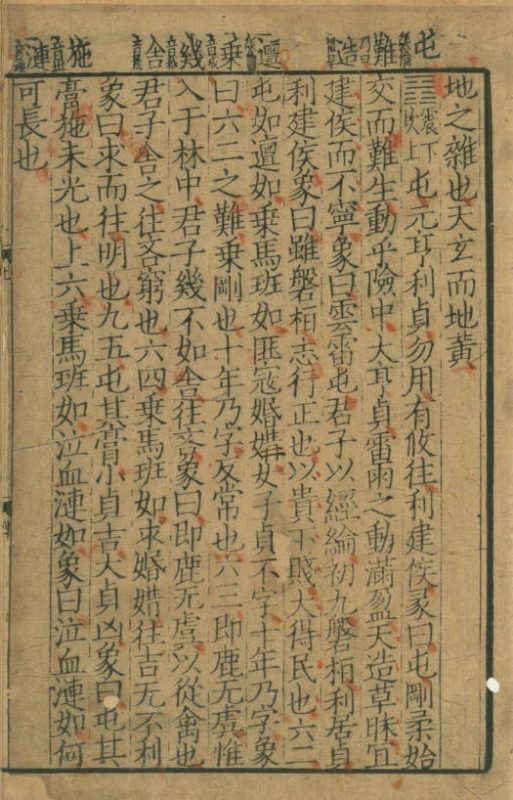 屯
難
造
邅
乘
幾
舍
施
漣
地之雜也天玄而地黃
䷂震下坎上屯元亨利貞勿用有攸往利建侯彖曰屯剛柔始
交而難生動乎險中大亨貞雷雨之動滿盈天造草昧宜
建侯而不寧象曰雲雷屯君子以經綸初九磐桓利居貞
利建侯象曰雖磐桓志行正也以貴下賤大得民也六二
屯如邅如乘馬班如匪寇婚媾女子貞不字十年乃字象
曰六二之難乘剛也十年乃字反常也六三即鹿无虞惟
入于林中君子幾不如舍往吝象曰即鹿无虞以從禽也
君子舍之往吝窮也六四乘馬班如求婚媾往吉无不利
象曰求而往明也九五屯其膏小貞吉大貞凶象曰屯其
膏施未光也上六乘馬班如泣血漣如象曰泣血漣如何
可長也